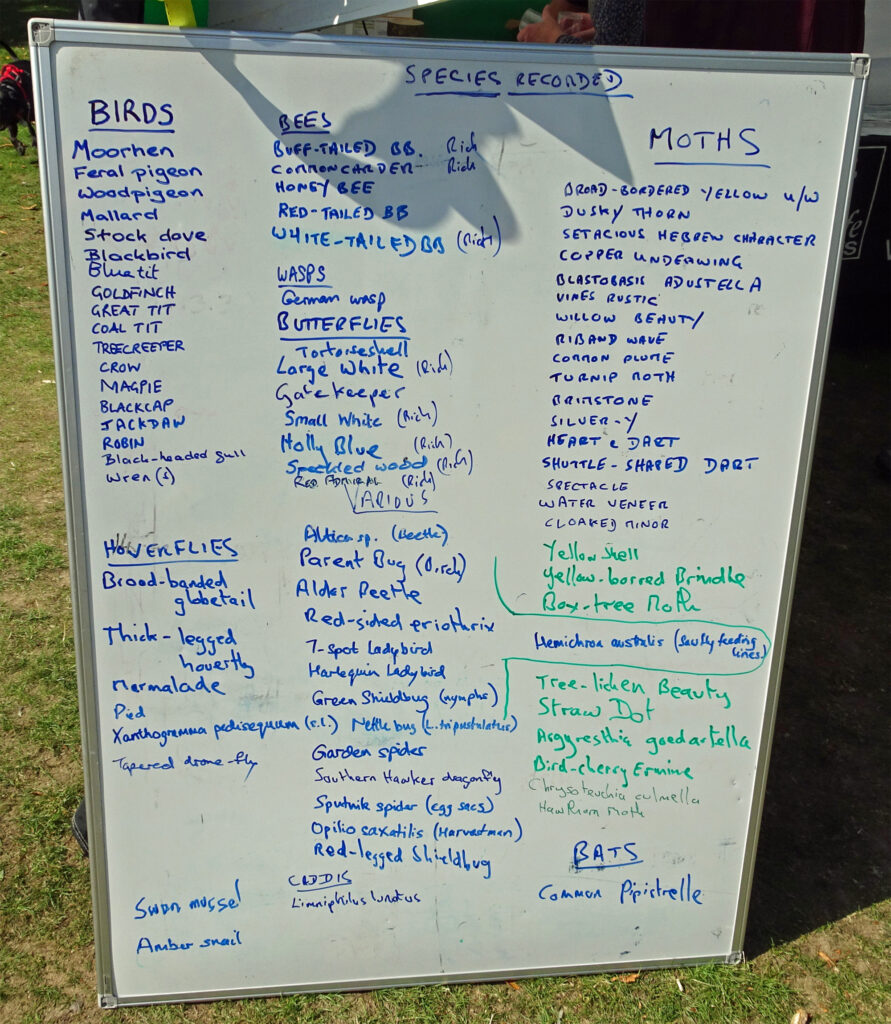 SPECIES RECORDED
BIRDS
Moorhen
Feral pigeon
Woodpigeon
Mallard
Stock dove
Blackbird
Bluetit
GOLDFINCH
GREAT TIT
COAL TIT
TREECREEPER
CROW
MAGPIE
BLACKCAP
JACKDAW
ROBIN
Black-headed gull
Wren (s)
HOVERFLIES
Broad-banded
globetail
Thick-legged
hoverfly
Marmalade
Pied
Xanthogramma pedissequum (s.l.)
Tapered drone-fly
Swan mussel
Amber snail
BEES
BUFF-TAILED BB. Rich
COMMON CARDER Rich
HONEY BEE
RED-TAILED BB
WHITE-TAILED BB (Rich)
WASPS
German wasp
BUTTERFLIES
Tortoiseshell
Large White (Rich)
Gatekeeper
Small White (Rich)
Holly Blue (Rich)
Speckled wood (Rich)
RED ADMIRAL (Rich)
VARIOUS
Altica sp. (Beetle)
Parent Bug (Birch)
Alder Beetle
Red-sided eriothrix
7-spot Ladybird
Harlequin Ladybird
Green Shieldbug (nymphs)
Nettle bug (L. tripustulatus)
Garden spider
Southern Hawker dragonfly
Sputnik spider (egg sacs)
Opilio saxatilis (Harvestman)
Red-legged Shieldbug
CADDIS
Limniphilus lunatus
MOTHS
BROAD-BORDERED YELLOW U/W
DUSKY THORN
SETACIOUS HEBREW CHARACTER
COPPER UNDERWING
BLASTOBASIS ADUSTELLA
VINES RUSTIC
WILLOW BEAUTY
RIBAND WAVE
COMMON PLUME
TURNIP MOTH
BRIMSTONE
SILVER-Y
HEART & DART
SHUTTLE-SHAPED DART
SPECTACLE
WATER VENEER
CLOAKED MINOR
Yellow shell
Yellow-barred Brindle
Box-tree Moth
Hemichroa australis (sawfly feeding
lines)
Tree-lichen Beauty
Straw Dot
Argyresthia goedartella
Bird-cherry Ermine
Chrysoteuchia culmella
Hawthorn Moth
BATS
Common Pipistrelle